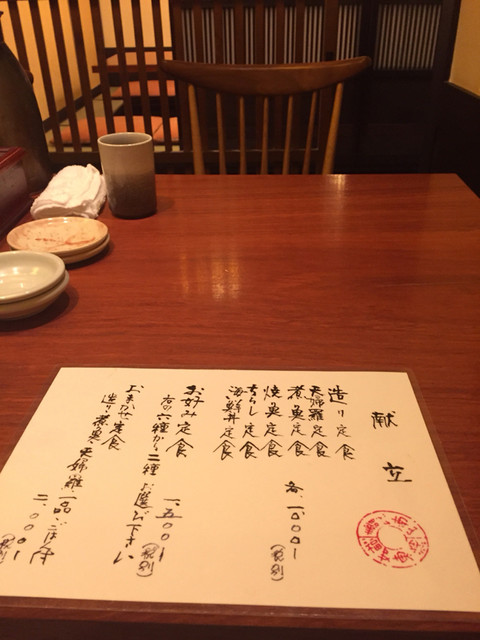 献立
造り定食
天婦羅定食
煮魚定食
焼魚定食
ちらし定食
海鮮丼定食
各一、〇〇〇-
(税別)
お好み定食
右の六種から二種お選び下さい
一、五〇〇-
(税別)
おまかせ定食
造り 煮魚 天婦羅 一品 ごはん付
二、〇〇〇-
(税別)